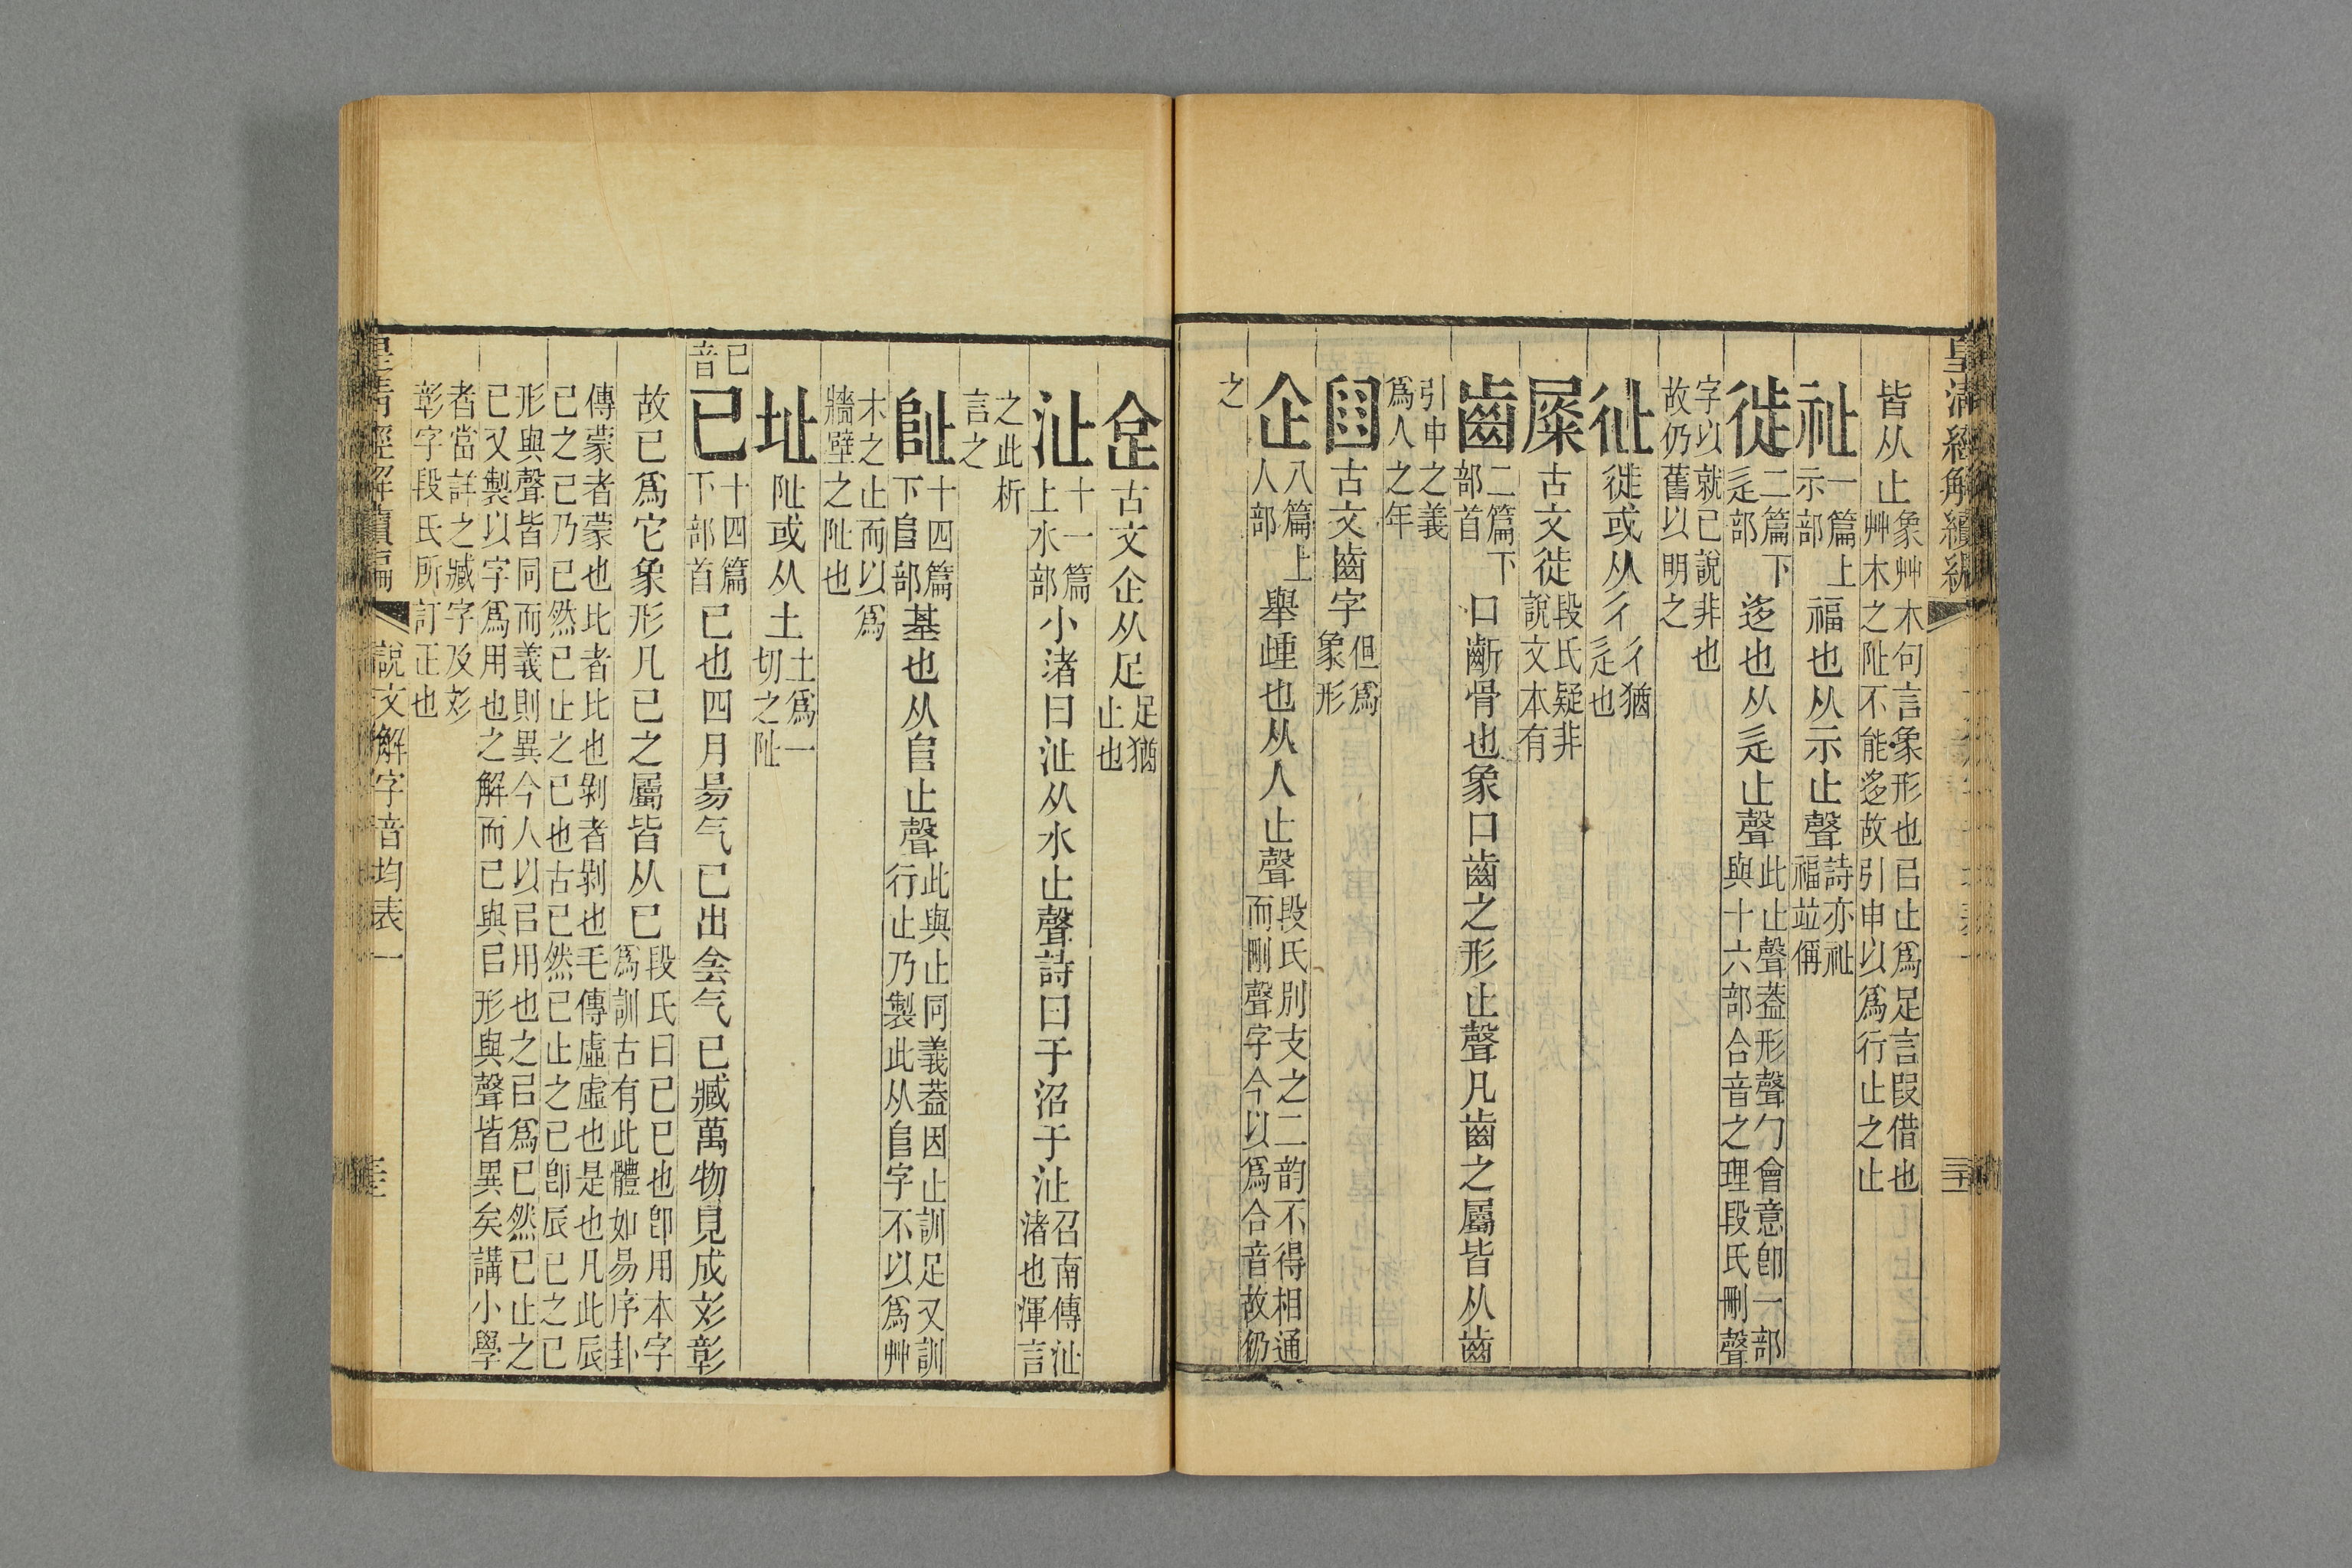 皇清經解續編
皆从止象艸木句言象形也㠯止爲足言叚借也
艸木之阯不能迻故引申以爲行止之止
祉一篇上示部福也从示止聲詩亦祉福竝偁
徙二篇下辵部迻也从辵止聲此止聲葢形聲勹會意卽一部
與十六部合音之理段氏刪聲
字以就已說非也
故仍舊以明之
𢓊徙或从彳彳猶辵也
𡲴古文徙段氏疑非說文本有
齒二篇下部首口齗骨也象口齒之形止聲凡齒之屬皆从齒
引申之義
爲人之年
𦥒古文齒字但爲象形
企八篇上人部舉歱也从人止聲段氏別支之二韵不得相通
而刪聲字今以爲合音故仍
之
𠈮古文企从足足猶止也
沚十一篇上水部小渚曰沚从水止聲詩曰于沼于沚召南傳沚
渚也渾言
之此析
言之
阯十四篇下𨸏部基也从𨸏止聲此與止同義葢因止訓足又訓
行止乃製此从𨸏字不以爲艸
木之止而以爲
牆壁之阯也
址阯或从土土爲一切之阯
已音
巳十四篇下部首已也四月昜气巳出侌气巳臧萬物見成彣彰
故巳爲它象形凡巳之屬皆从巳段氏曰巳巳也卽用本字
爲訓古有此體如易序卦
傳蒙者蒙也比者比也剝者剝也毛傳虛虛也是也凡此辰
巳之巳乃已然已止之已也古已然已止之已卽辰巳之巳
形與聲皆同而義則異今人以㠯用也之㠯爲已然已止之
已又製以字爲用也之解而已與㠯形與聲皆異矣講小學
者當詳之臧字及彣
彰字段氏所訂正也
皇清經解續編
說文解字音均表一